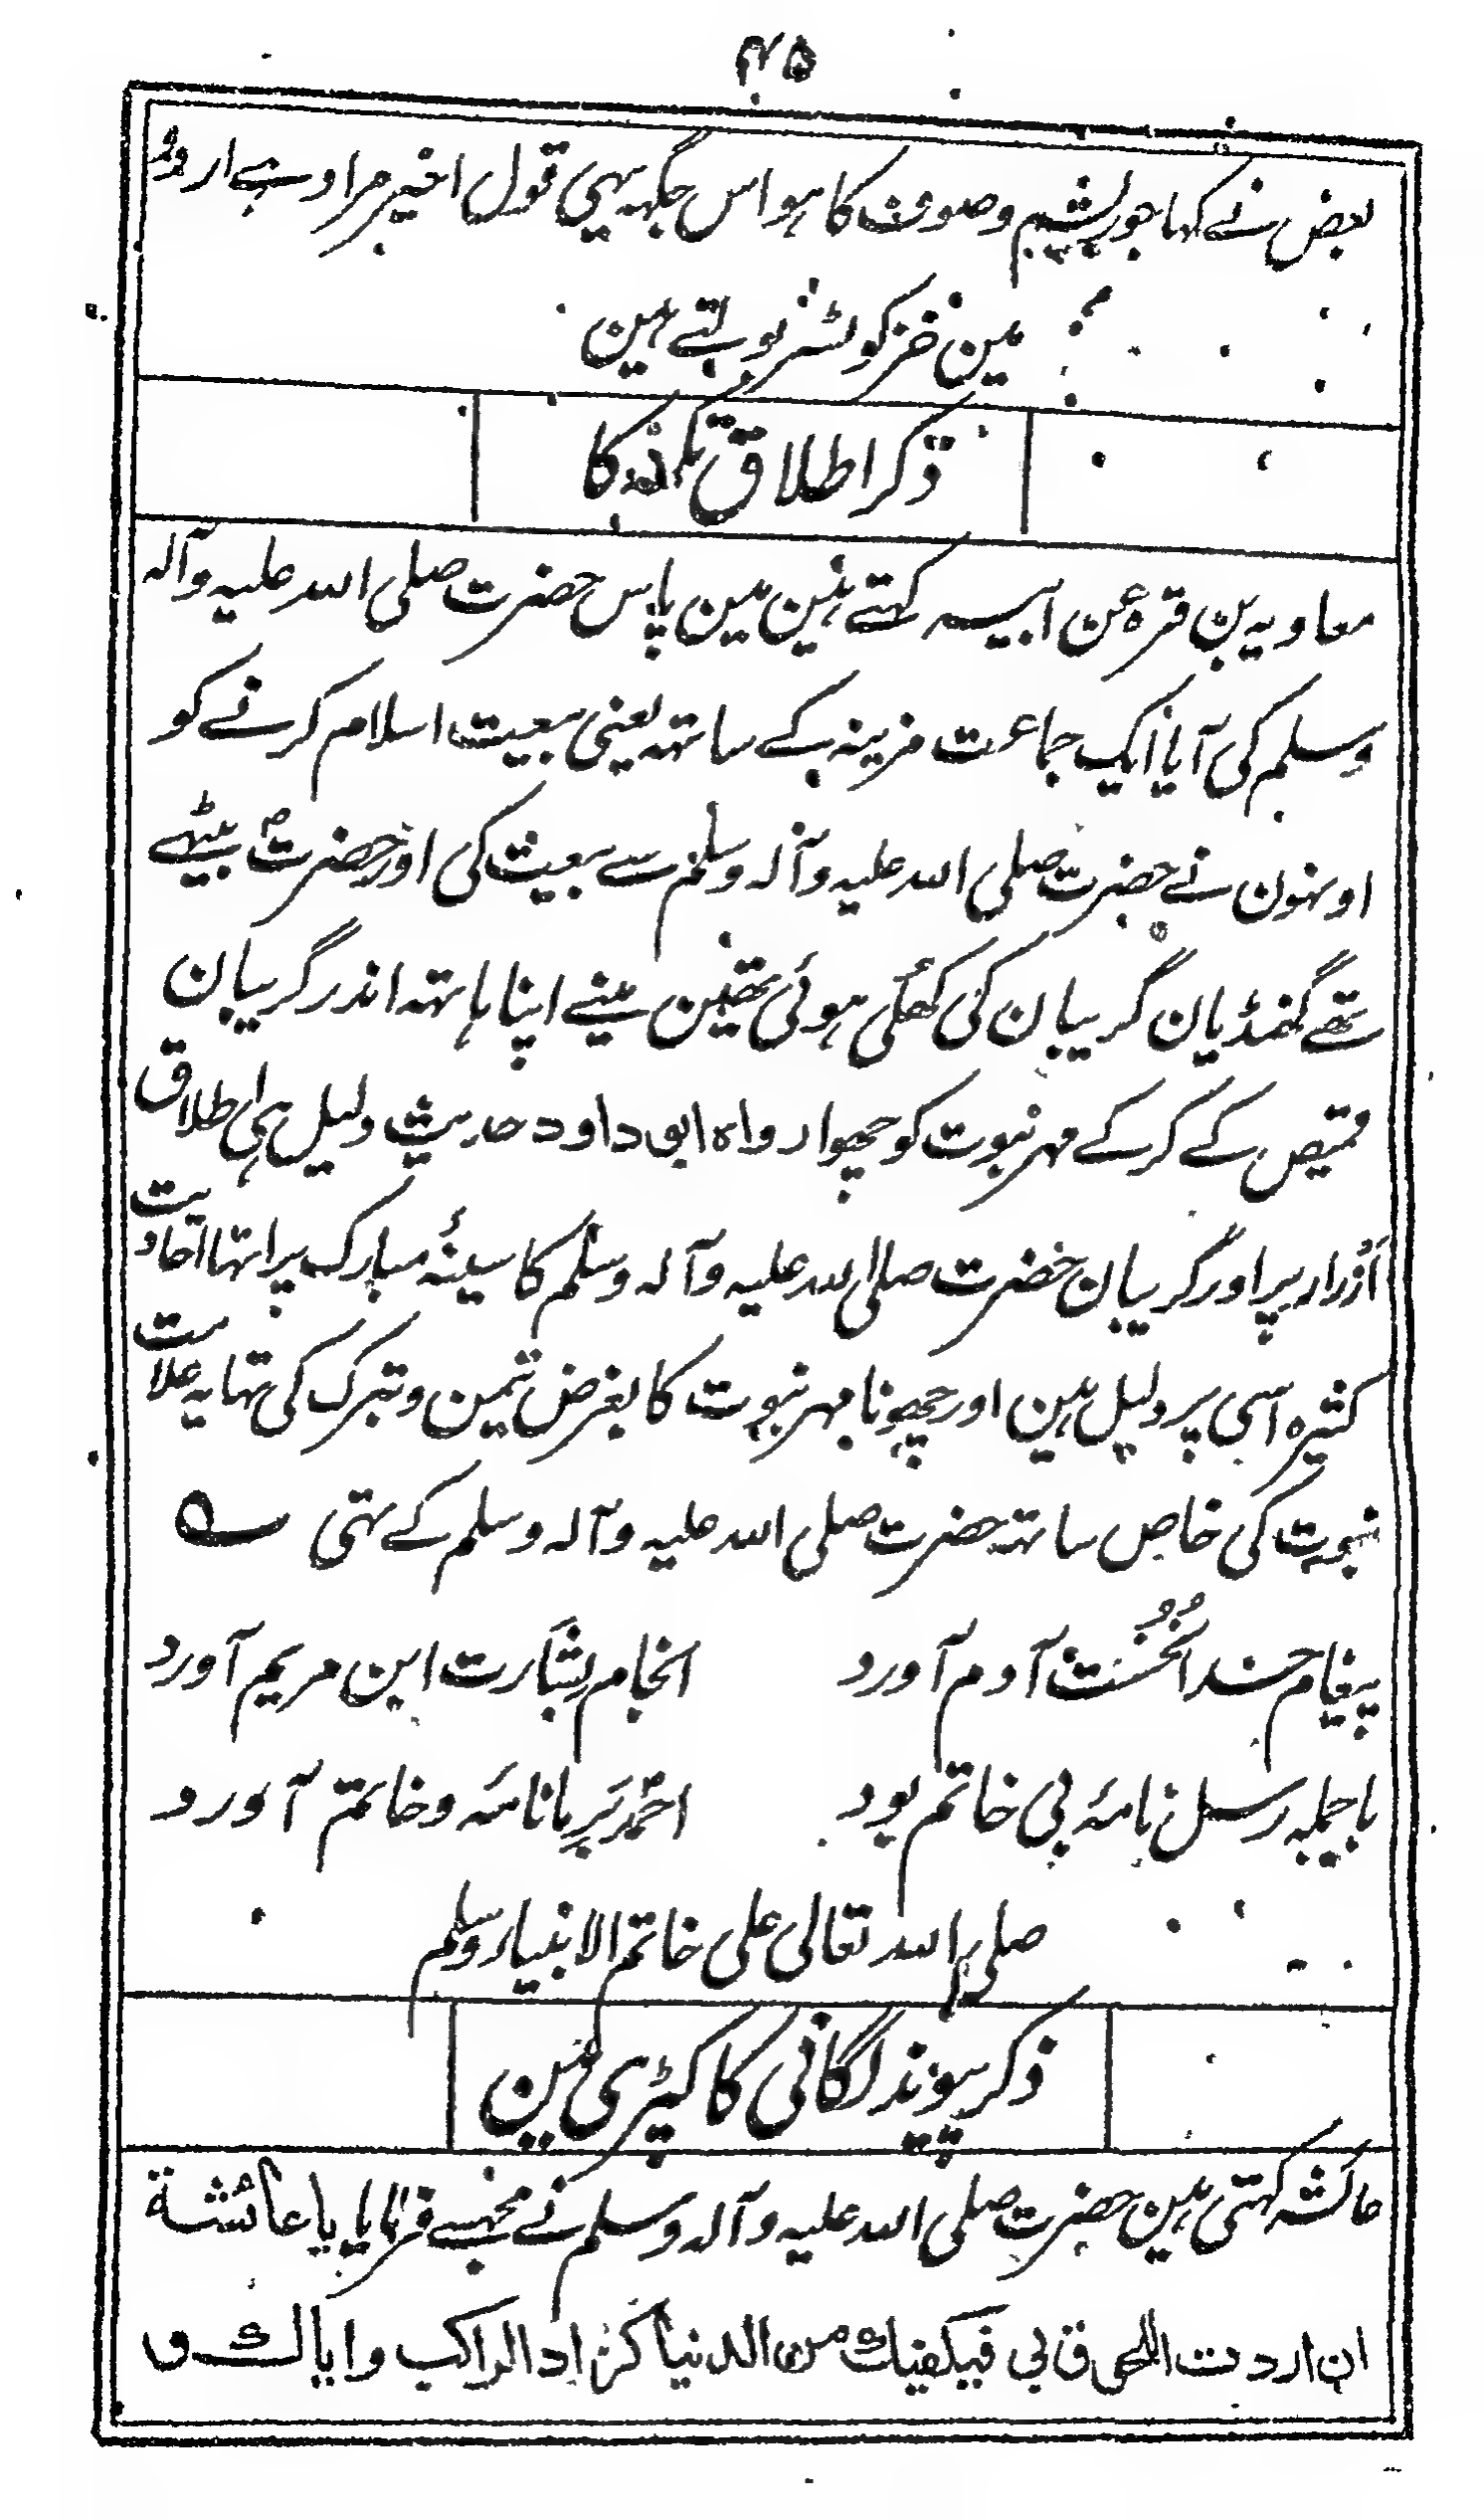 ۴۵
بعض نے کہا جو ریشیم وصوف کا ہو اس جگہہ یہی قول اخیر مراد ہے اردو
مین خز کو بولتے ہین
ذکر اطلاق کا
معاویہ بن قرہ عن ابیہ کہتے ہین مین پاس حضرت صلی اللہ علیہ وآلہ
وسلم کی آیا ایک جماعت مزینہ کے ساتہہ یعنی بیعت اسلام کرنے کو
اونہون نے حضرت صلی اللہ علیہ وآلہ وسلم سے بیعت کی اور حضرتؐ بیٹھے
تھے گھنڈیان گریبان کی کھُلی ہوئی تھین مینے اپنا ہاتہہ اندر گریبان
قمیص کے کرکے مہر نبوت کو چھوا رواہ ابو داود حدیث دلیل ہی اطلاق
اَزْرار پر اور گریبان حضرت صلی اللہ علیہ وآلہ وسلم کا سینۂ مبارک پر تہا احادیث
کثیرہ اسی پر دلیل ہین اور چھونا مہر نبوت کا بغرض تیمن و تبرک کی تہا یہ علامت
نبوت کی خاص ساتہہ حضرت صلی اللہ علیہ وآلہ وسلم کے تہی ؎
پیغام خدا نُخُسْت آدم آورد انجام بشارت ابن مریم آورد
با جملہ رسل نامۂ بی خاتم بود احمدؐ برِ ما نامہ و خاتم آورد
صلی اللہ تعالی علی خاتم الانبیاء وسلم
ذکر پیوند لگانی کا کپڑی مین
عائشہ کہتی ہین حضرت صلی اللہ علیہ وآلہ وسلم نے مجہسے فرمایا یا عائشة
ان اردت اللحوق بی فیکفیك من الدنیا کزاد الراکب وایاك و